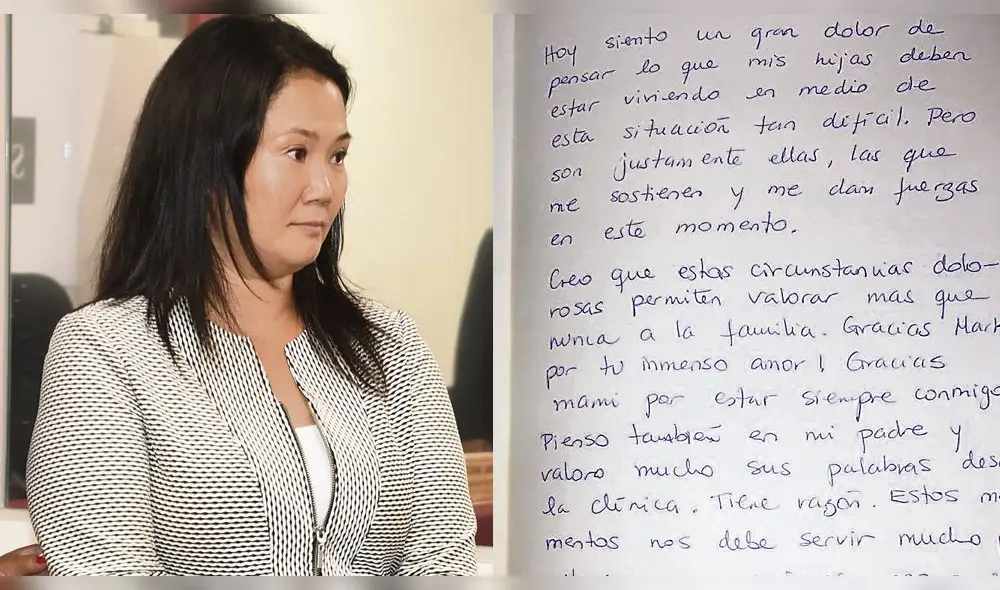 Hoy siento un gran dolor de
pensar lo que mis hijas deben
estar viviendo en medio de
esta situación tan difícil. Pero
son justamente ellas, las que
me sostienen y me dan fuerzas
en este momento.
Creo que estas circunstancias dolo-
rosas permiten valorar más que
nunca a la familia. Gracias Mark
por tu inmenso amor! Gracias
mami por estar siempre conmigo
Pienso también en mi padre y
valoro mucho sus palabras des
la clínica. Tiene razón. Estos mo
mentos nos debe servir mucho